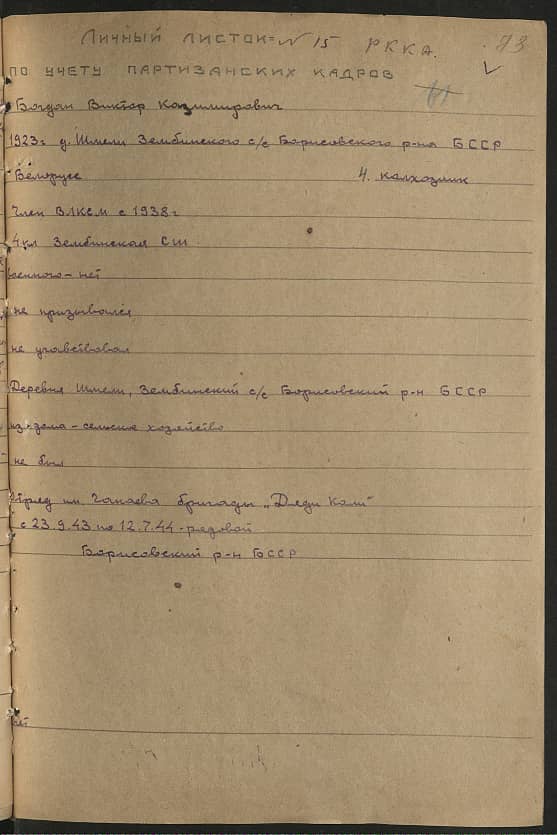 Личный листок= N 15 РККА. 93
по учету партизанских кадров
Богдан Виктор Казимирович
1923 г д. Шмели Зембинского с/с Борисовского р-на БССР
Белорусс 4. калхозник
Член ВЛКСМ с 1938 г
4 кл Зембинская СШ
военного - нет
не призывался
не учавствовал
Деревня Шмели, Зембинский с/с Борисовский р-н БССР
из дома - сельское хозяйство
не был
Отряд им. Чапаева бригады „Дяди Коли"
с 23.9.43 по 12.7.44 - рядовой
Борисовский р-н БССР
нет